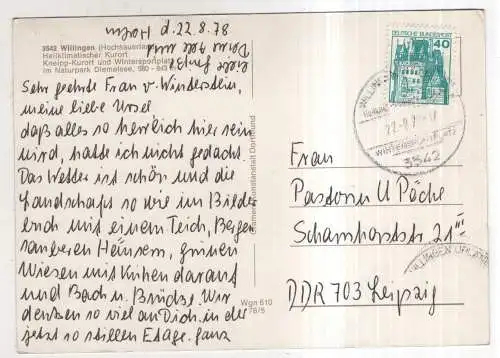 d. 22.8.78
3542 Willingen (Hochsauerland)
Heilklimatischer Kurort
Kneipp-Kurort und Wintersportplatz
im Naturpark Diemelsee, 560 - 843 m
Sehr geehrte Frau v. Winterstein,
meine liebe Ursel
daß alles so herrlich hier sein
wird, hatte ich nicht gedacht.
Das Wetter ist schön und die
Landschaft so wie im Bilder
buch mit einem Teich, Bergen
sauberen Häusern, grünen
Wiesen mit Kühen darauf
und Bach u. Brücke. Wir
denken so viel an Dich in der
jetzt so stillen Etage. Ganz
Kunstanstalt Dortmund
Wgn 610
78/5
DEUTSCHE BUNDESPOST
40
WILLINGEN
22.8.7
WINTERSPORTPLATZ
3542
WILLINGEN
Frau
Pastorin U Päche
Scharnhorststr. 21 III
DDR 703 Leipzig